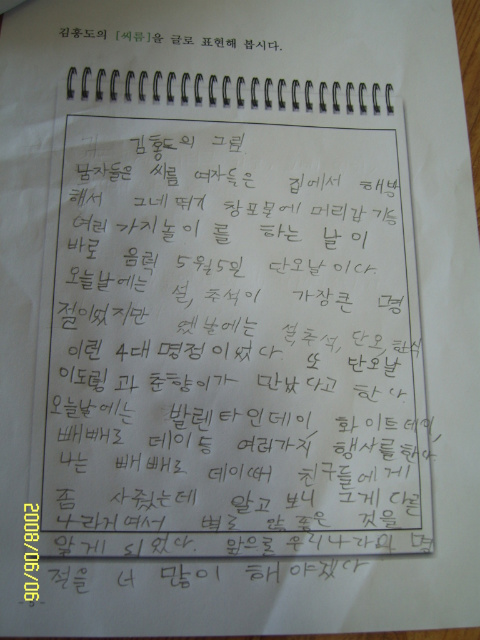 김홍도의 [씨름]을 글로 표현해 봅시다.
김홍도의 그림
남자들은 씨름 여자들은 집에서 해방
해서 그네뛰기 창포물에 머리감기등
여러가지놀이를 하는 날이
바로 음력 5월5일 단오날이다.
오늘날에는 설,추석이 가장큰 명
절이었지만 옛날에는 설,추석,단오,한식
이런 4대 명절이 있었다. 또 단오날
이도령과 춘향이가 만났다고 한다.
오늘날에는 발렌타인데이, 화이트데이,
빼빼로 데이등 여러가지 행사를한다
나는 빼빼로 데이때 친구들에게
좀 사줬는데 알고 보니 그게 다른
나라꺼여서 별로 안 좋은 것을
알게 되었다. 앞으로 우리나라의 명
절을 더 많이 해야겠다
2008/09/06